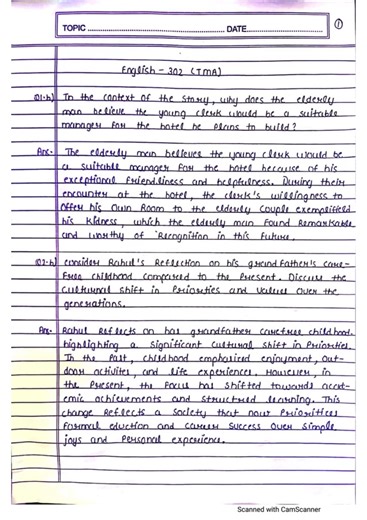 TOPIC .......................................................... DATE..........................
①
English - 302 (TMA)
Q1-b) In the context of the story, why does the elderly
man believe the young clerk would be a suitable
manager for the hotel he plans to build?
Ans- The elderly man believes the young clerk would be
a suitable manager for the hotel because of his
exceptional friendliness and helpfulness. During their
encounter at the hotel, the clerk's willingness to
offer his own Room to the elderly couple exemplified
his Kidness, which the elderly man found Remarkable
and worthy of Recognition in this Future.
Q2-b) consider Rahul's Reflection on his grandfather's care-
Free childhood compared to the present. Discuss the
cultural shift in Priorities and values over the
generations.
Ans- Rahul Reflects on has grandfather carefree childhood,
highlighting a Significant cultural shift in Priorities.
In the Past, childhood emphasized enjoyment, out-
door activites, and life experiences. However, in
the Present, the Focus has shifted towards acad-
emic achievements and structured learning. This
change Reflects a Society that now Prioritizes
Formal eduction and career success over simple
joys and Personal experience.
Scanned with CamScanner